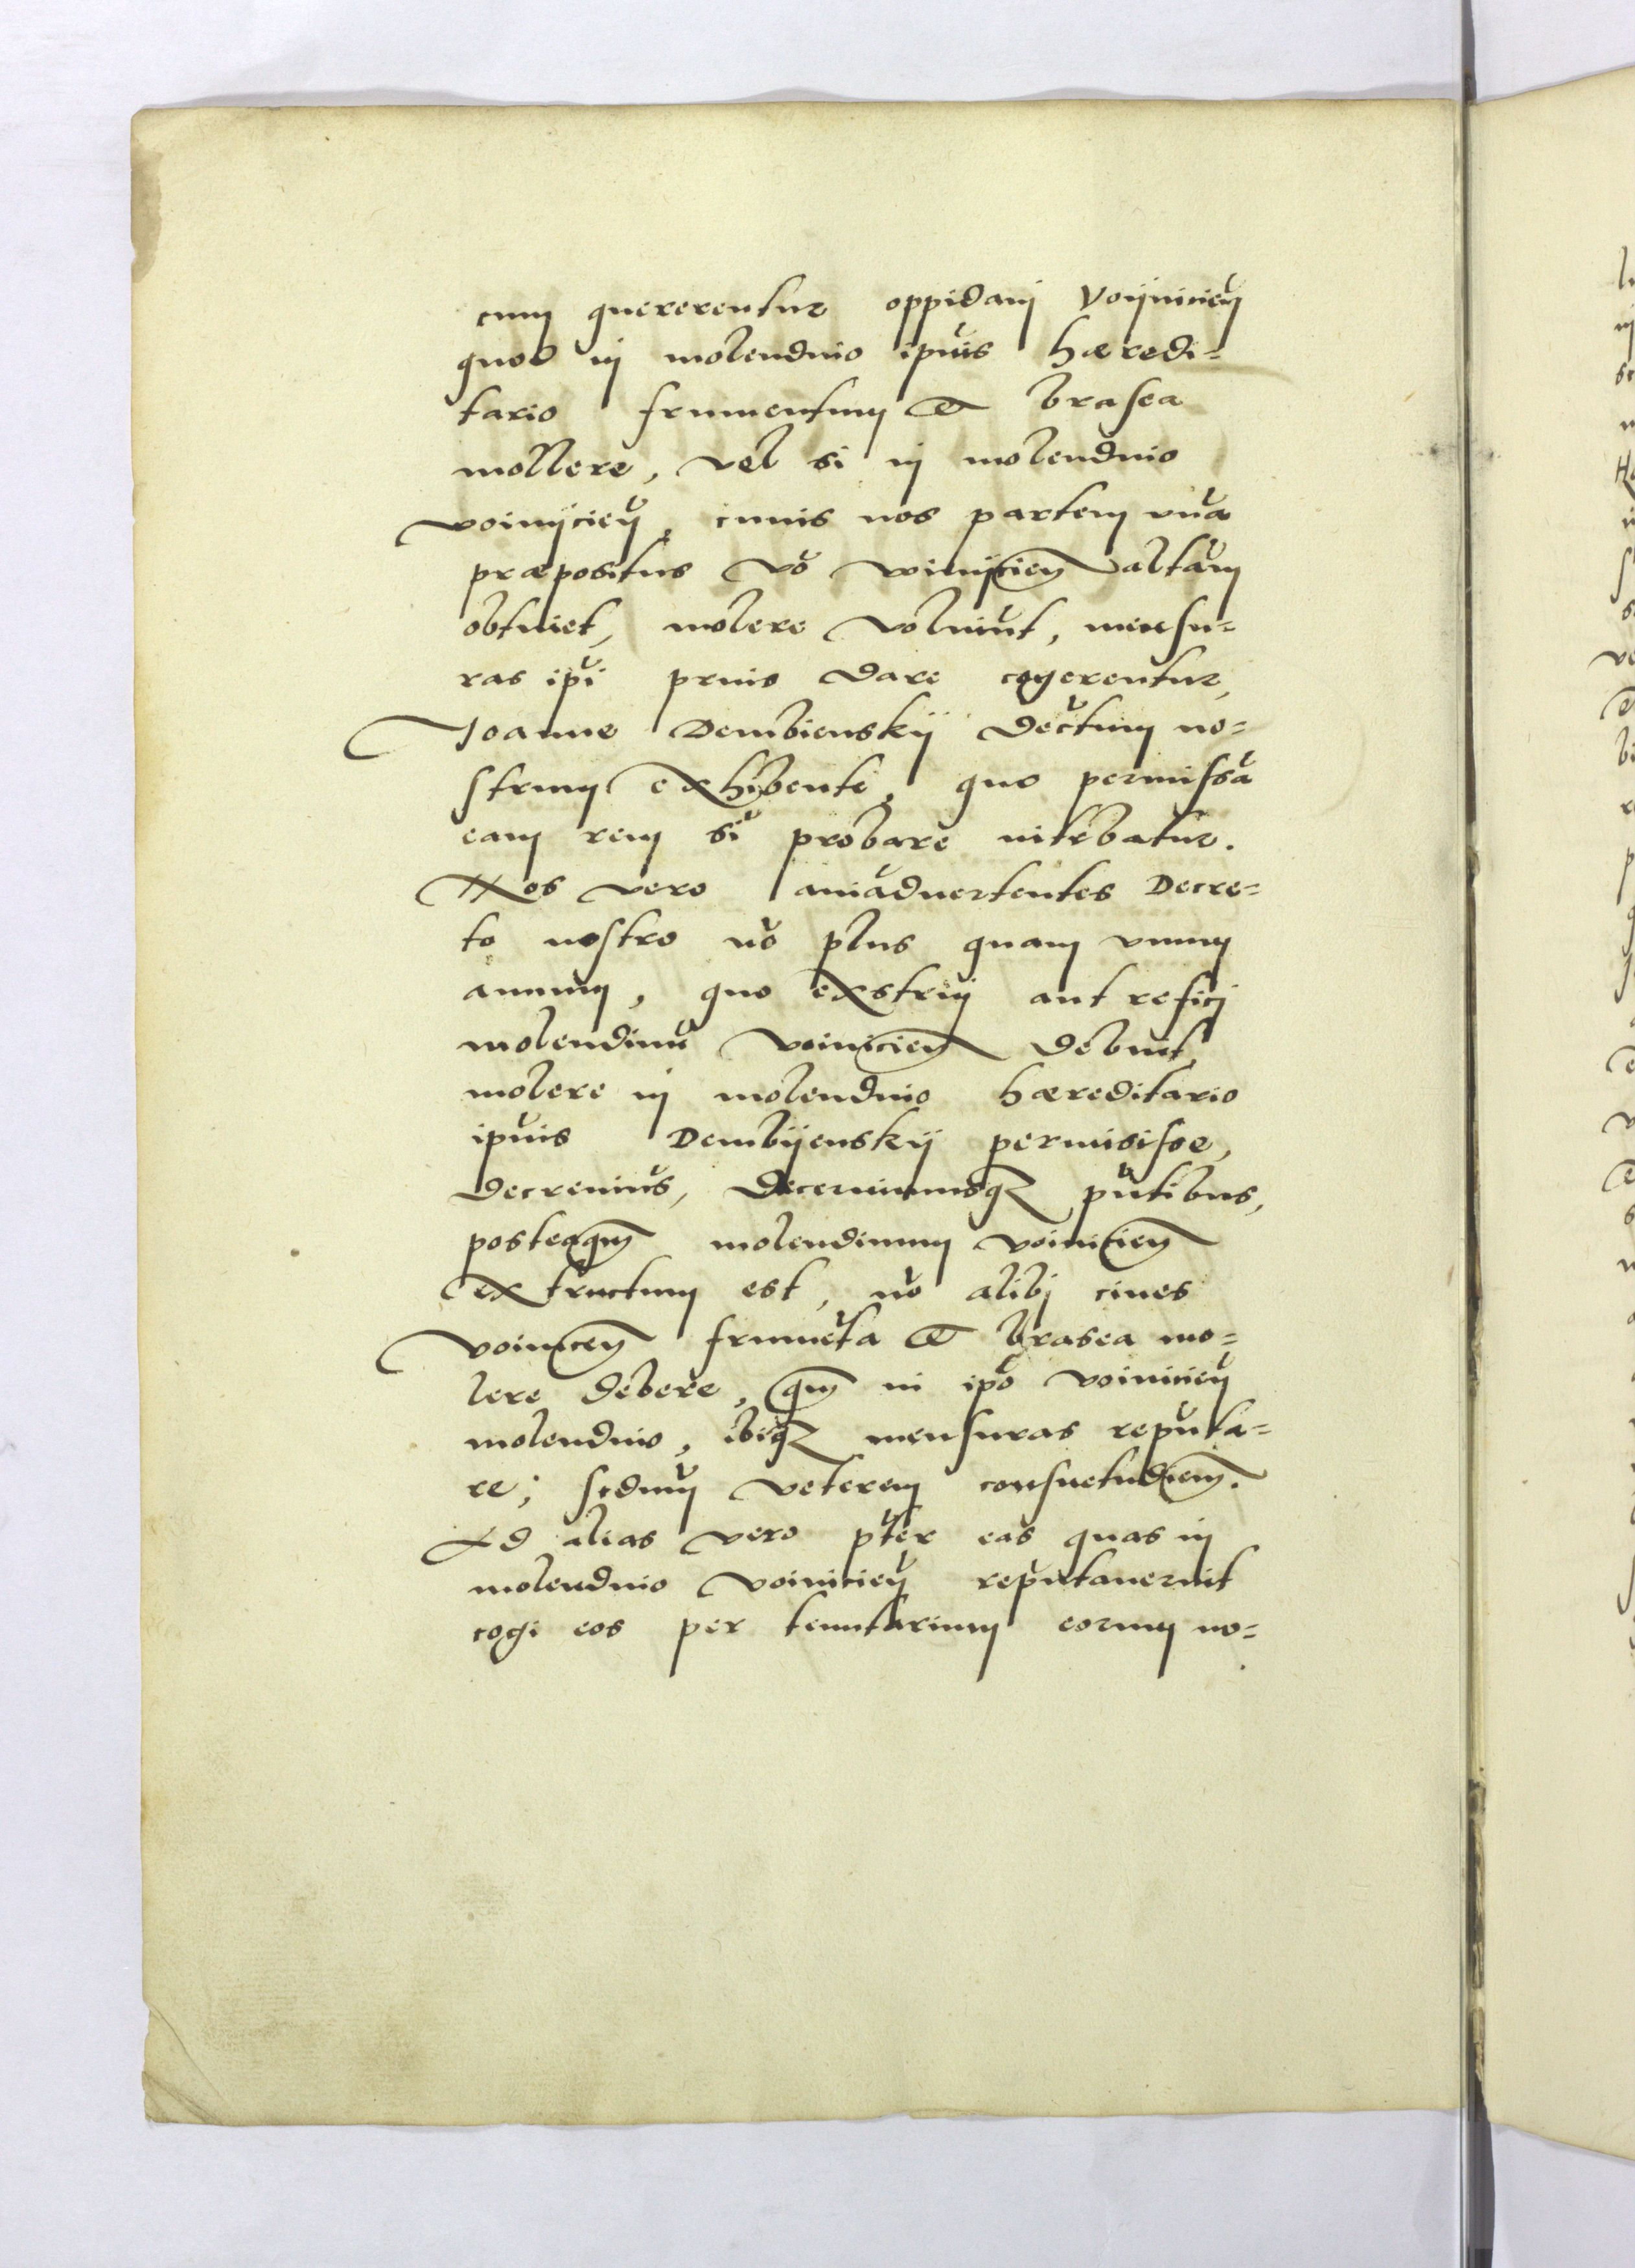 cum quererentur oppidanj Voijnicień
quod in molendino ipĭus hæredi=
tario frumentum & brasea
mollere, vel si in molendino
voinijcień, cuius nos partem vnă
præpositus vŏ voinijcieñ altăm
obtinet, molere volniŭt, mensu=
ras ipĭ primo dare cogerentur,
Joanne Dembienskij decˇtum no=
strum exhibente, quo permissă
eam rem sĭ probare nitebatur.
Nos vero aniăduertentes Decre=
to nostro nŏ plus quam vnum
annum, quo exstrui aut refici
molendinŭ voinicieñ debuit,
molere in molendino hæreditario
ipĭus Dembijenskij permisisse,
decreuimŭs, decernimusqȝ pňtibus,
posteaqm̃ molendinum voinicieñ
extructum est, nŏ alibj ciues
voiniceñ frumĕta & brasea mo=
lere debere, qm̃ in ipŏ voinicień
molendino, ibiqȝ mensuras reputa=
re; scdmŭ veterem consuetudiem̃.
Ad alias vero pˇter eas quas in
molendino voinicień reputauerint
cogi eos per tenutarium eorum no=